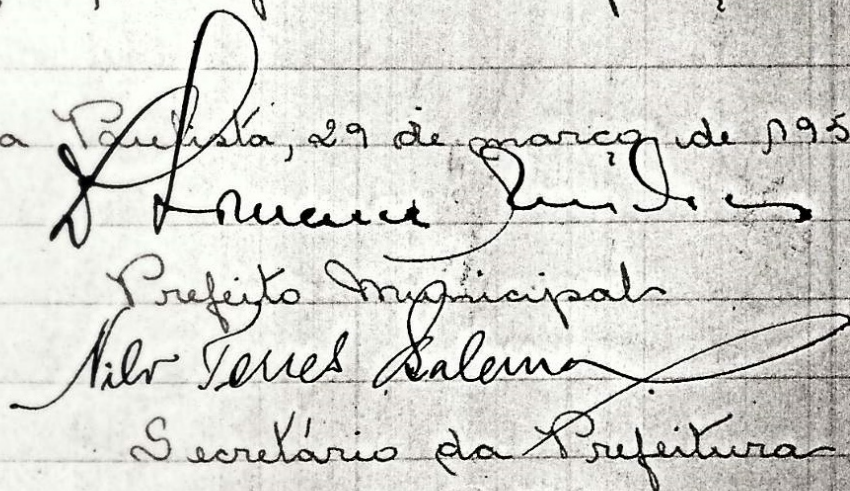 a Paulista, 29 de março de 195
Prefeito Municipal
Nilo Torres Salema
Secretário da Prefeitura